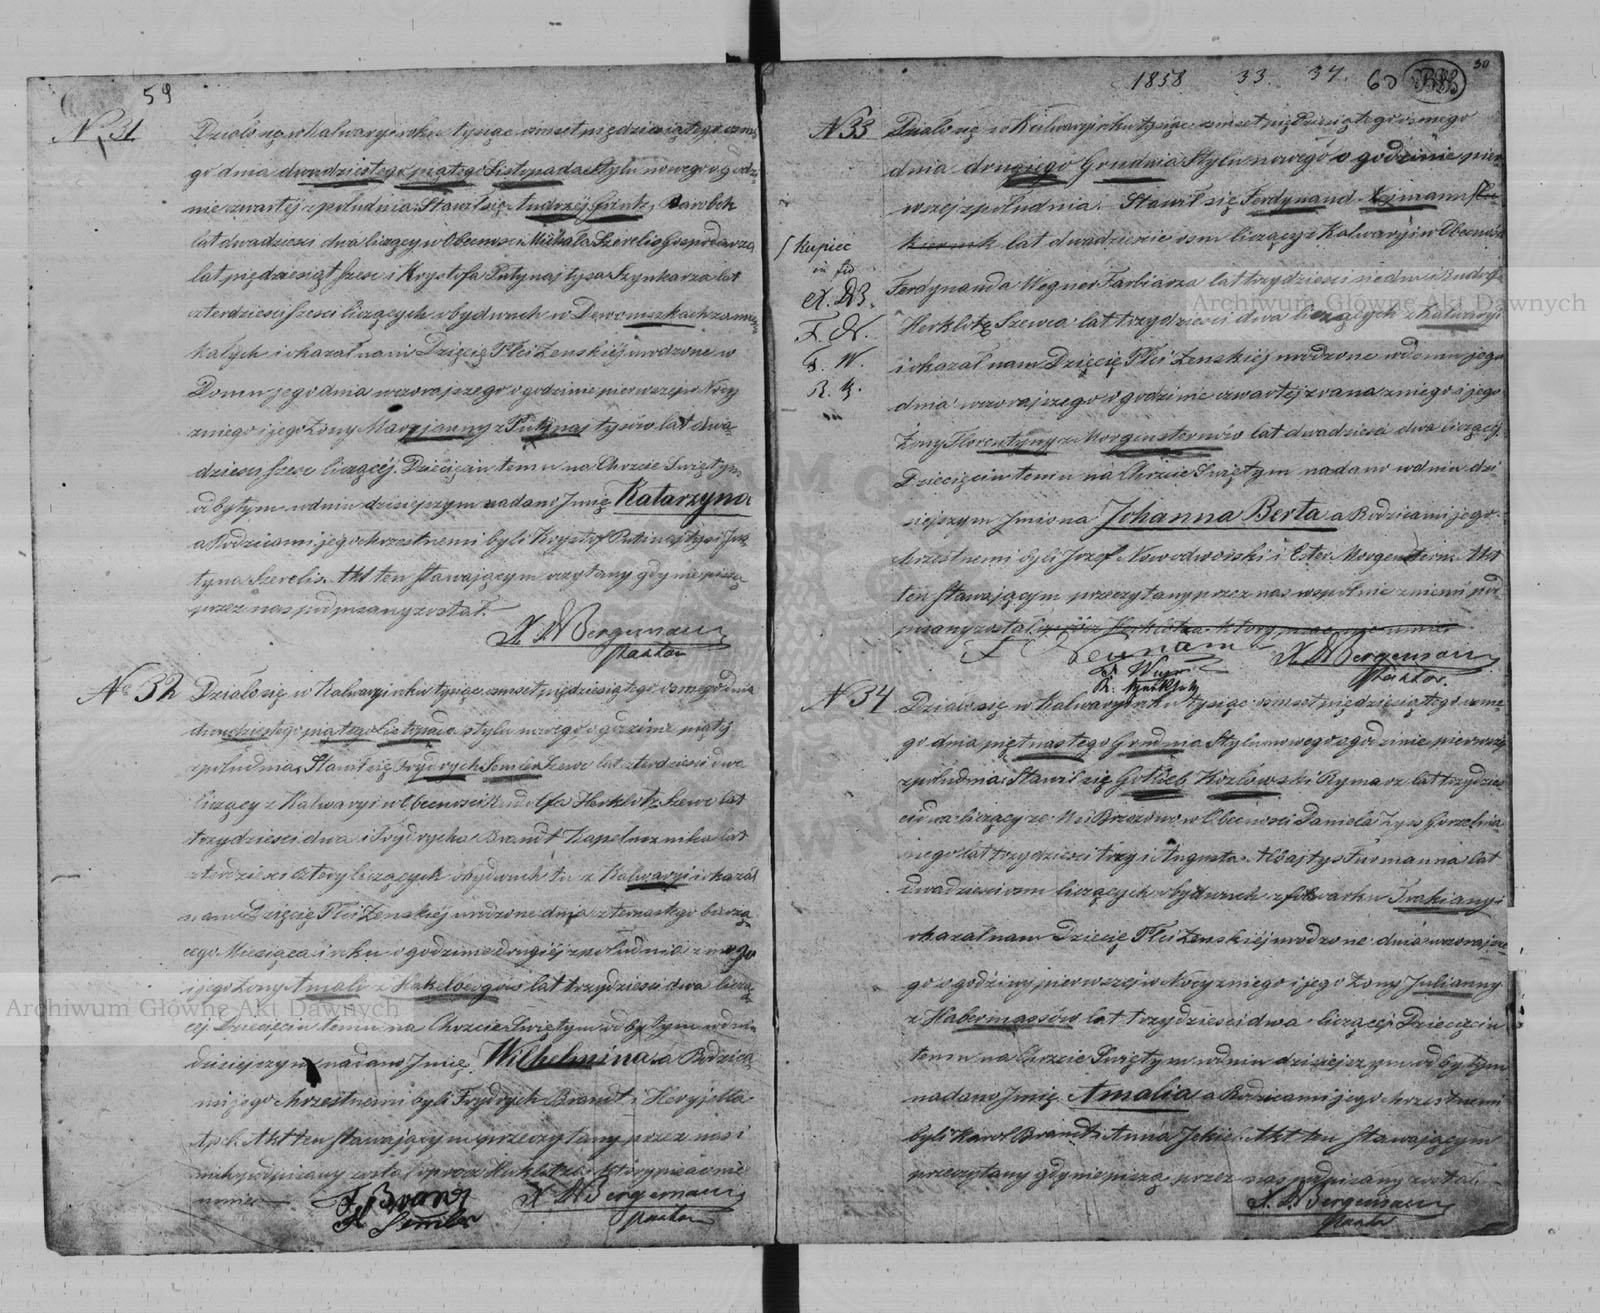 59
N. 31
Działo się w Kalwaryi roku tysiąc ośmset pięćdziesiątego ósme
go dnia dwudziestego piątego Listopada Stylu nowego o godzi
nie czwartej z południa. Stawił się Andrzej Parobek
lat dwadzieścia dwa liczący w Obecności Michała Szerelis Gospodarza
lat pięćdziesiąt sześć i Krysztofa Putynajtysa Szynkarza lat
czterdzieści sześć liczących obydwuch w zamiesz
kałych i okazał nam Dziecię Płci Żeńskiéj urodzone w
Domu jego dnia wczorajszego o godzinie pierwszej w Nocy
z niego i jego Żony Maryjanny z Putynajtysów lat dwa
dzieścia sześć liczącéj. Dziecięciu temu na Chrzcie Świętym
odbytym w dniu dzisiejszym nadano Imię Katarzyna
a Rodzicami jego chrzestnemi byli Krysztof Putinajtys i Jus
tyna Szerelis. Akt ten stawającym czytany gdy nie piszą
przez nas podpisany został.
X. W Bergemann
Pastor
N. 32
Działo się w Kalwaryi roku tysiąc ośmset pięćdziesiątego ósmego dnia
dwudziestego piątego Listopada stylu nowego o godzinie piątéj
z południa. Stawił się Frydrych Semler Szewc lat czterdzieści dwa
liczący z Kalwaryi w Obecności Rudolfa Herklotz Szewc lat
trzydzieści dwa i Frydrycha Brandt Kapelusznika lat
czterdzieści cztery liczących obydwuch tu z Kalwaryi i okazał
nam Dziecię Płci Żeńskiéj urodzone dnia czternastego bieżą
cego Miesiąca i roku o godzinie drugiéj z południa z niego
i jego Żony Amalii z Hakelbergów lat trzydzieści dwa liczą
céj. Dziecięciu temu na Chrzcie Świętym odbytym w dniu
dzisiejszym nadano Imię Wilhelmina a Rodzica
mi jego chrzestnemi byli Frydrych Brandt i Henryjetta
Akt ten stawającym przeczytany przez nas i
nich podpisany został oprócz Herklotza który pisać nie
umie
F Brandt
F Semler
X. W Bergemann
Pastor
1858 33. 34. 60
30
N 33
Działo się w Kalwaryi roku tysiąc ośmset pięćdziesiątego ósmego
dnia drugiego Grudnia Stylu nowego o godzinie pier
wszej z południa. Stawił się Ferdynand
lat dwadzieścia ośm liczący z Kalwaryi w Obecności
Kupiec
Ferdynanda Wegner Farbiarza lat trzydzieści siedm i Rudolfa
X. W. B.
Herklotz Szewca lat trzydzieści dwa liczących z Kalwaryi
F. N.
i okazał nam Dziecię Płci Żeńskiéj urodzone w domu jego
F. W.
R. H.
dnia wczorajszego o godzinie czwartéj z rana z niego i jego
Żony Florentyny z Morgensternów lat dwadzieścia dwa liczącéj.
Dziecięciu temu na Chrzcie Świętym nadano w dniu dzi
siejszym Imiona Johanna Berta a Rodzicami jego
chrzestnemi byli Jozef Nowodworski i Ester Morgenstern. Akt
ten stawającym przeczytany przez nas wspólnie z niemi pod
pisany został oprócz Herklotza który pisać nie umie
F Neumann
F. Wegner
R. Herklotz
X. W Bergemann
Pastor.
N 34
Działo się w Kalwaryi roku tysiąc ośmset pięćdziesiątego ósme
go dnia piętnastego Grudnia Stylu nowego o godzinie pierwszej
z południa. Stawił się Gotlieb Kozłowski Rymarz lat trzydzieści
dwa liczący ze Wsi Brzozowo w Obecności Daniela Gorzelnia
nego lat trzydzieści trzy i Augusta Furmanna lat
dwadzieścia ośm liczących obydwuch z folwarku Trakiany i
okazał nam Dziecię Płci Żeńskiéj urodzone dnia wczorajsze
go o godziny pierwszej w Nocy z niego i jego Żony Julianny
z Habermassów lat trzydzieści dwa liczącéj. Dziecięciu
temu na Chrzcie Świętym w dniu dzisiejszym odbytym
nadano Imię Amalia a Rodzicami jego chrzestnemi
byli Karol Brandt i Anna Akt ten stawającym
przeczytany gdy nie piszą przez nas podpisany został.
X. W Bergemann
Pastor
Archiwum Główne Akt Dawnych
Archiwum Główne Akt Dawnych